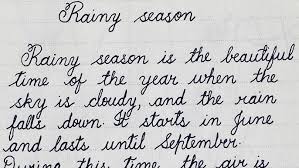 Rainy season
Rainy season is the beautiful
time of the year when the
sky is cloudy, and the rain
falls down. It starts in June
and lasts until September.
During this time, the air is